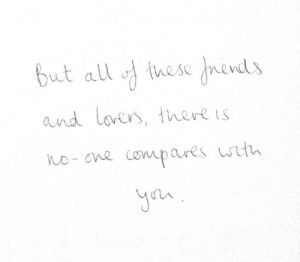 But all of these friends
and lovers, there is
no-one compares with
you.